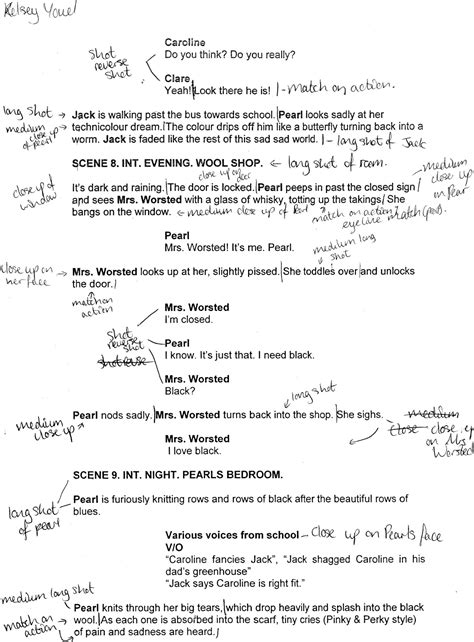 Kelsey Youel
Caroline
shot reverse shot
Do you think? Do you really?
Clare
Yeah! Look there he is! - match on action.
long shot
Jack is walking past the bus towards school. Pearl looks sadly at her
medium close up of pearl
technicolour dream. The colour drips off him like a butterfly turning back into a
worm. Jack is faded like the rest of this sad sad world. - long shot of Jack
SCENE 8. INT. EVENING. WOOL SHOP. long shot of room.
close up on
medium close up on Pearl
close up of window
It's dark and raining. The door is locked. Pearl peeps in past the closed sign
and sees Mrs. Worsted with a glass of whisky, totting up the takings. She
bangs on the window. medium close up of Pearl
match on action
eyeline match (pov).
Pearl
Mrs. Worsted! It's me. Pearl.
medium long shot
close up on her face
Mrs. Worsted looks up at her, slightly pissed. She toddles over and unlocks
the door.
match on action
Mrs. Worsted
I'm closed.
shot reverse shot
Pearl
I know. It's just that. I need black.
Mrs. Worsted
Black?
long shot
medium close up
Pearl nods sadly. Mrs. Worsted turns back into the shop. She sighs.
medium
close close up on Mrs Worsted
Mrs. Worsted
I love black.
SCENE 9. INT. NIGHT. PEARLS BEDROOM.
long shot of pearl
Pearl is furiously knitting rows and rows of black after the beautiful rows of
blues.
Various voices from school - close up on Pearls face
V/O
"Caroline fancies Jack", "Jack shagged Caroline in his
dad's greenhouse"
"Jack says Caroline is right fit."
medium long shot
Pearl knits through her big tears, which drop heavily and splash into the black
match on action
wool. As each one is absorbed into the scarf, tiny cries (Pinky & Perky style)
of pain and sadness are heard.